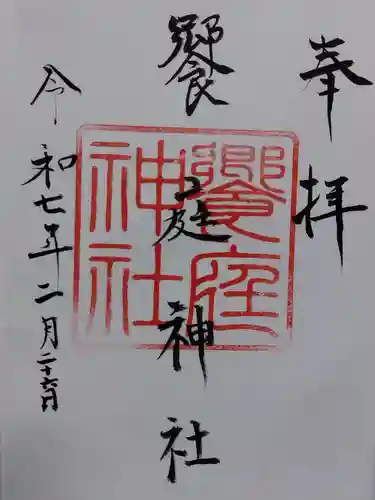 奉拝
饗庭神社
令和七年二月二十六日
饗庭
神社